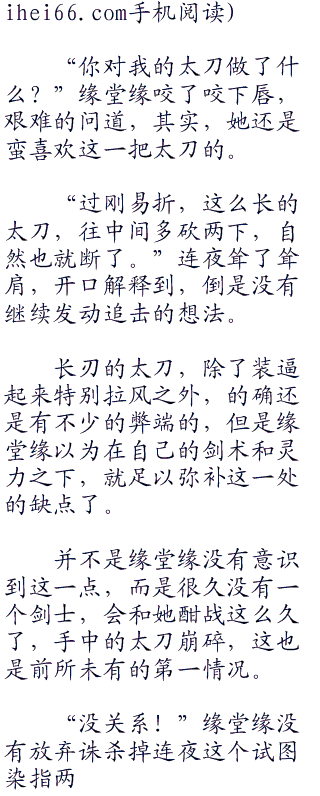 ihei66.com手机阅读）
“你对我的太刀做了什
么？”缘堂缘咬了咬下唇，
艰难的问道，其实，她还是
蛮喜欢这一把太刀的。
“过刚易折，这么长的
太刀，往中间多砍两下，自
然也就断了。”连夜耸了耸
肩，开口解释到，倒是没有
继续发动追击的想法。
长刃的太刀，除了装逼
起来特别拉风之外，的确还
是有不少的弊端的，但是缘
堂缘以为在自己的剑术和灵
力之下，就足以弥补这一处
的缺点了。
并不是缘堂缘没有意识
到这一点，而是很久没有一
个剑士，会和她酣战这么久
了，手中的太刀崩碎，这也
是前所未有的第一情况。
“没关系！”缘堂缘没
有放弃诛杀掉连夜这个试图
染指两